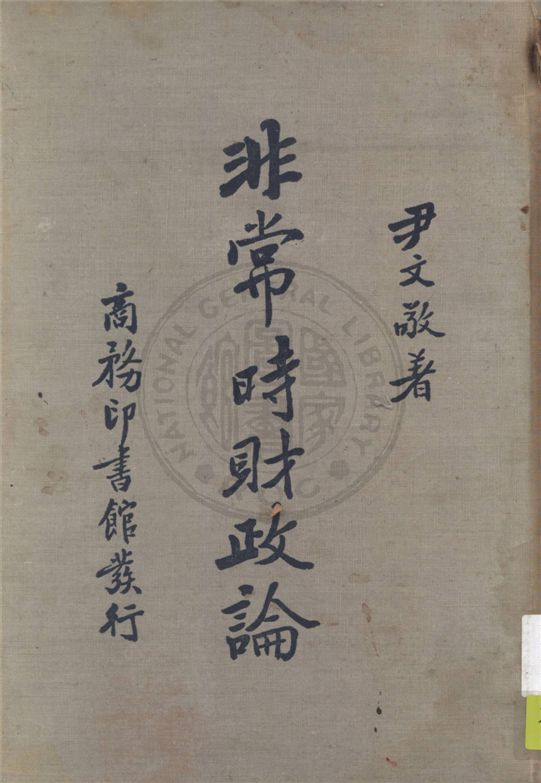 尹文敬著
非常時財政論
商務印書館發行
NATIONAL CENTRAL LIBRARY